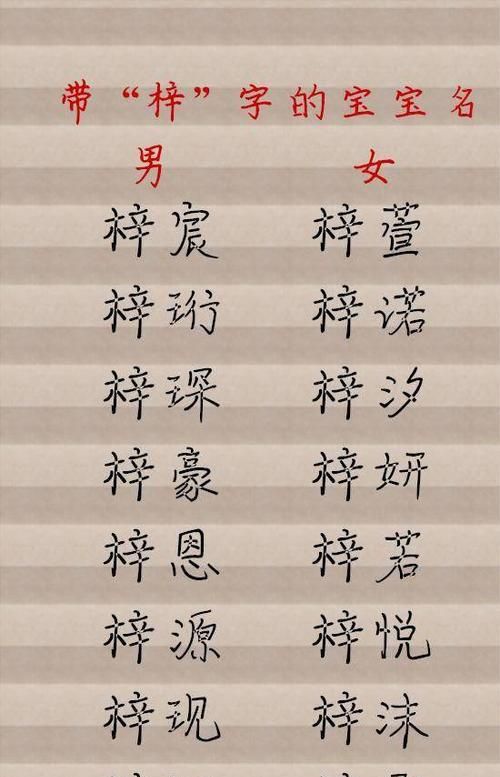 带“梓”字的宝宝名
男 女
梓宸 梓萱
梓珩 梓诺
梓琛 梓汐
梓豪 梓妍
梓恩 梓若
梓源 梓悦
梓现 梓沫